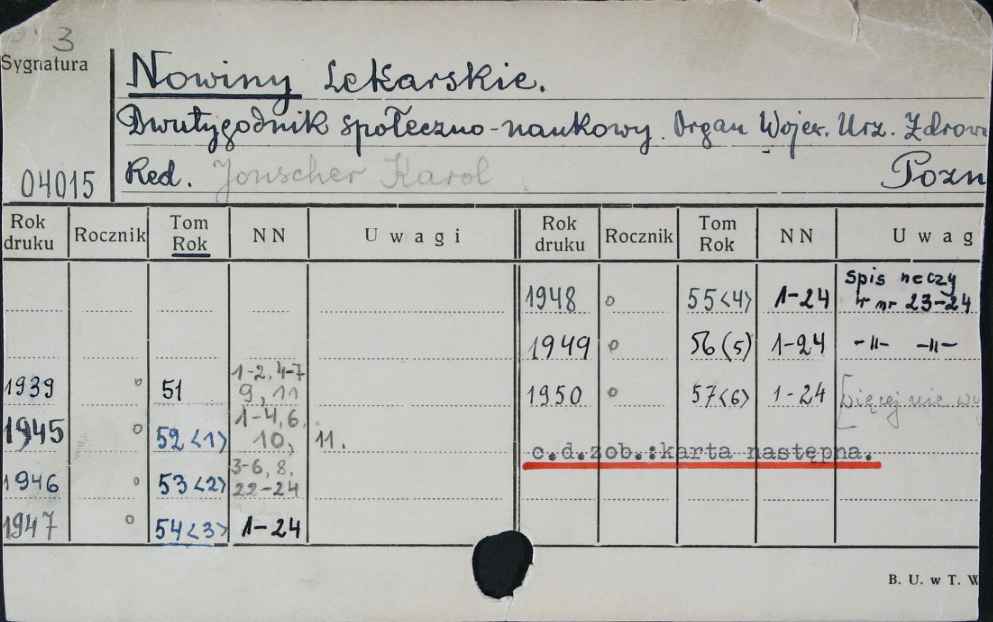 3
Sygnatura
Nowiny Lekarskie.
Dwutygodnik społeczno-naukowy. Organ Wojew. Urz. Zdrow
04015
Red. Jonscher Karol
Pozn
Rok druku Rocznik Tom Rok NN Uwagi Rok druku Rocznik Tom Rok NN Uwag
1939 o 51 1-2, 4-7 9, 11
1945 o 52<1> 1-4, 6, 10, 11.
1946 o 53<2> 3-6, 8. 22-24
1947 o 54<3> 1-24
1948 o 55<4> 1-24 spis rzeczy w nr 23-24
1949 o 56(5) 1-24 -"- -"-
1950 o 57<6> 1-24 [więcej nie wy
c.d.zob.:karta następna.
B. U. w T. W